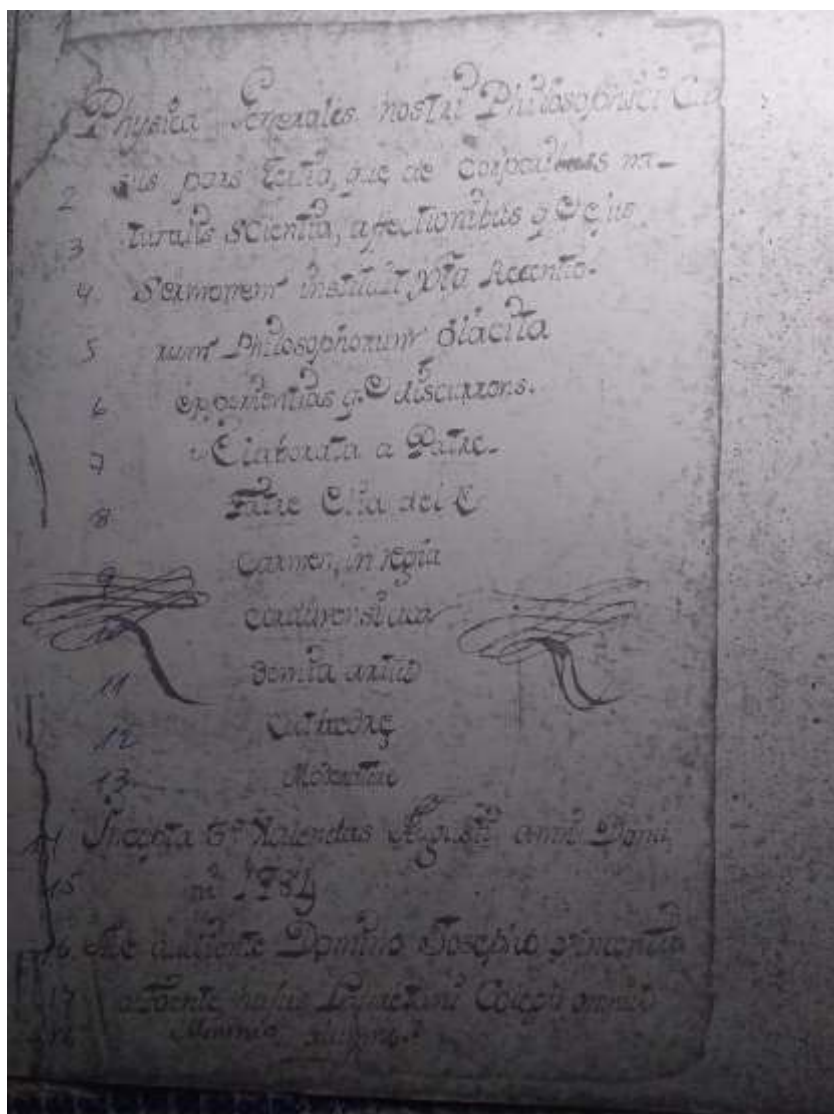 Physica Generales nostri Philosophici Cur
2 sus pars tertia, que de corporibus na-
3 turalis scientia, affectionibus q.e ejus
4. Sermonem instituit jxta Recentio-
5 rum Philosophorum Placita
6 experientias q.e discurrens.
7 Elaborata a Patre.
8 Fratre Elia del
9 Carmen, in regia
10 cordubensi aca
11 demia artium
12 Cathedre
13 Moderatore
14 Incepta Kalendas Augusti anni Domi
15 ni 1784
16 Me audiente Domino Josepho
17 hujus Collegii omnium
18 Minimo alumno.